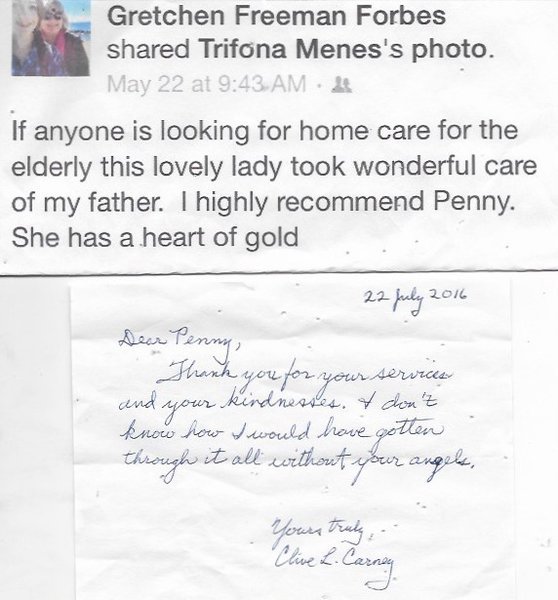 Gretchen Freeman Forbes
shared Trifona Menes's photo.
May 22 at 9:43 AM ·
If anyone is looking for home care for the
elderly this lovely lady took wonderful care
of my father. I highly recommend Penny.
She has a heart of gold
22 July 2016
Dear Penny,
Thank you for your services
and your kindnesses. I don't
know how I would have gotten
through it all without your angels.
Yours truly,
Clive L. Carney